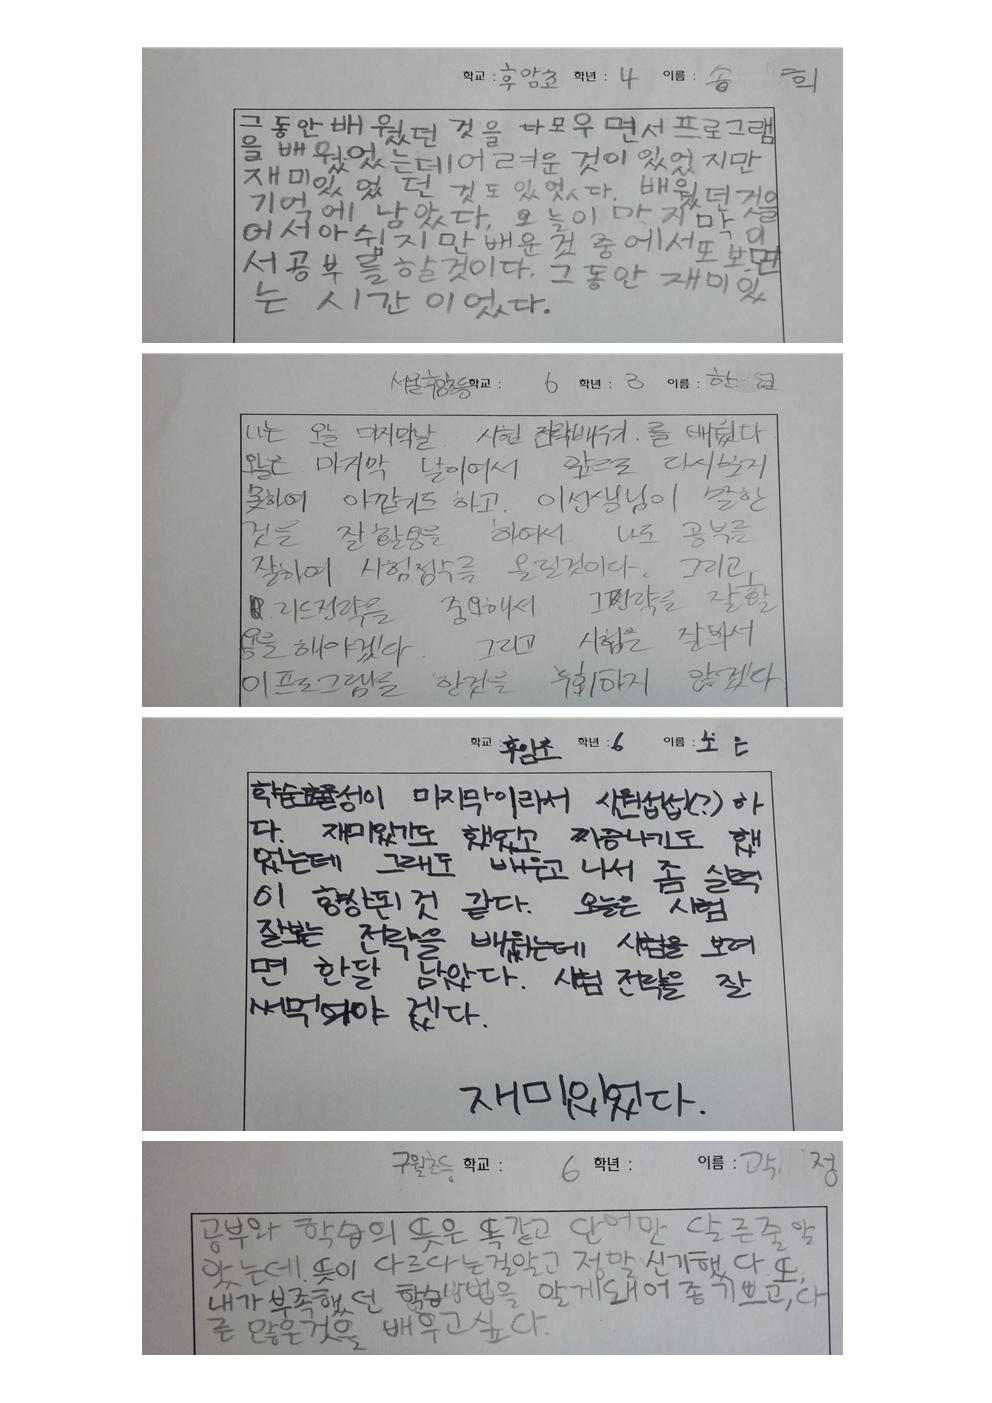 학교 : 후암초 학년 : 4 이름 : 송 희
그동안 배웠던 것을 다모우면서 프로그램
을 배웠었는데 어려운 것이 있었지만
재미있었던 것도 있었다. 배웠던것을
기억에 남았다, 오늘이 막지막이
어서 아쉽지만 배운것 중에서 또 보면
서 공부를 할것이다. 그동안 재미있
는 시간이었다.
서울후암초등학교 : 6 학년 : 3 이름 : 한
나는 오늘 마지막날 시험 전략배우기. 를 배웠다
오늘은 마지막 날이여서 앞으로 다시보지
못하여 아깝기도 하고. 이선생님이 말한
것을 잘 활용을 하여서 나도 공부를
잘하여 시험점수를 올릴것이다. 그리고
리드전략을 중요해서 그전략을 잘 활
용을 해야겠다. 그리고 시험은 잘봐서
이프로그램을 한것을 후회하지 않겠다
학교 : 후암초 학년 : 6 이름 : 소 은
학습 성이 마지막이라서 시원섭섭(?)하
다. 재미있기도 했었고 짜증나기도 했
었는데 그래도 배우고 나서 좀 실력
이 향상된것 같다. 오늘은 시험
잘보는 전략을 배웠는데 시험을 보려
면 한달 남았다. 시험 전략을 잘
써먹어야 겠다.
재미있었다.
구월초등 학교 : 6 학년 : 이름 : 곽 정
공부와 학습의 뜻은 똑같고 단어만 다른줄 알
았는데, 뜻이 다르다는걸알고 정말 신기했다. 또,
내가 부족했던 학습방법을 알게돼어 좋기쁘고, 다
른 많은것을 배우고싶다.